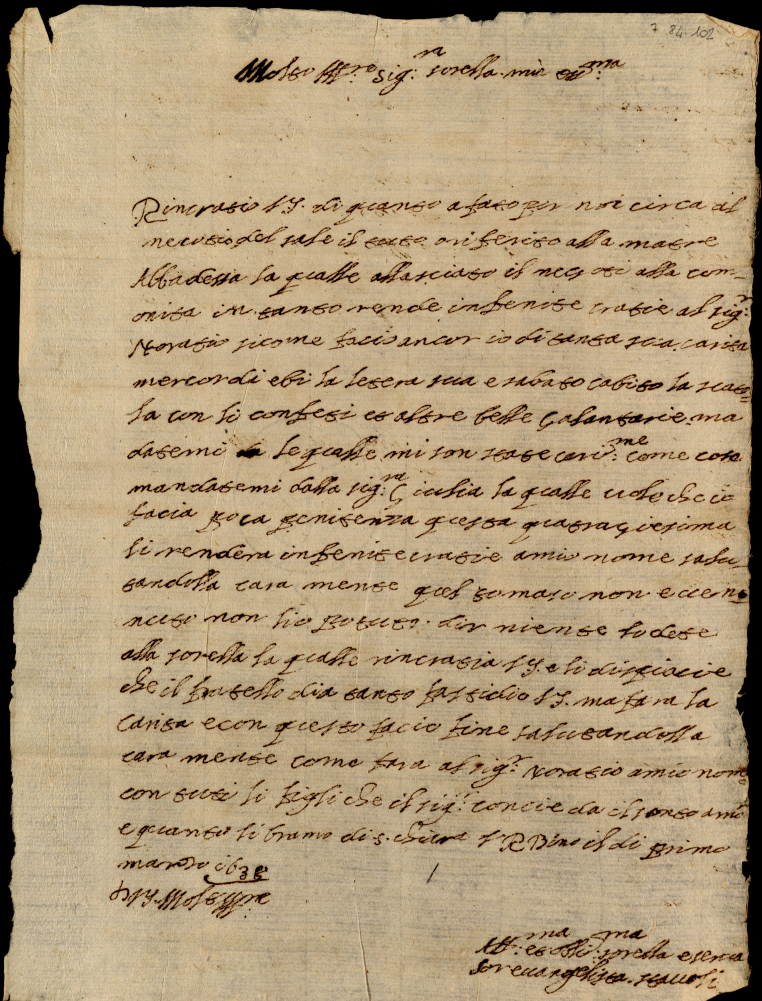 7 84-102
Molto Ill.re Sig.ra sorella mia oss.ma
Rincratio V.S. di quanto a fato per noi circa al
necotio del sale il tuto o riferito alla matre
Abbadessa la qualle a lasciato il necoti alla com-
onita in tanto rende infenite cratie al sig.r
Noratio sicome facio ancor io di tanta sua carita
mercordi ebi la letera sua e sabato cabito la scato=
la con li confeti et altre belle galantarie ma
datemi le qualle mi son state caris.me come cosa
mandatemi dalla sig.ra Giulia la qualle vole che io
facia poca penitenza questa quatragiesima
li rendera infenite cratie a mio nome salu
tandolla cara mente quel tomaso non e ven
nuto non lio potuto dir niente lo dete
alla sorella la qualle rincratia V.S. e li dispiacie
che il fratello dia tanto fastidio V.S. ma fara la
carita e con questo facio fine salutandolla
cara mente come fara al sig.r Noratio a mio nome
con tuti li figli che il sig.r concieda il santo amo
e quanto li bramo di S. chiara d'Vrbino il di primo
marzo 1638
D V.S. Molto Ill.re
Aff.ma et obli.ma sorella e serva
Sor evangelista